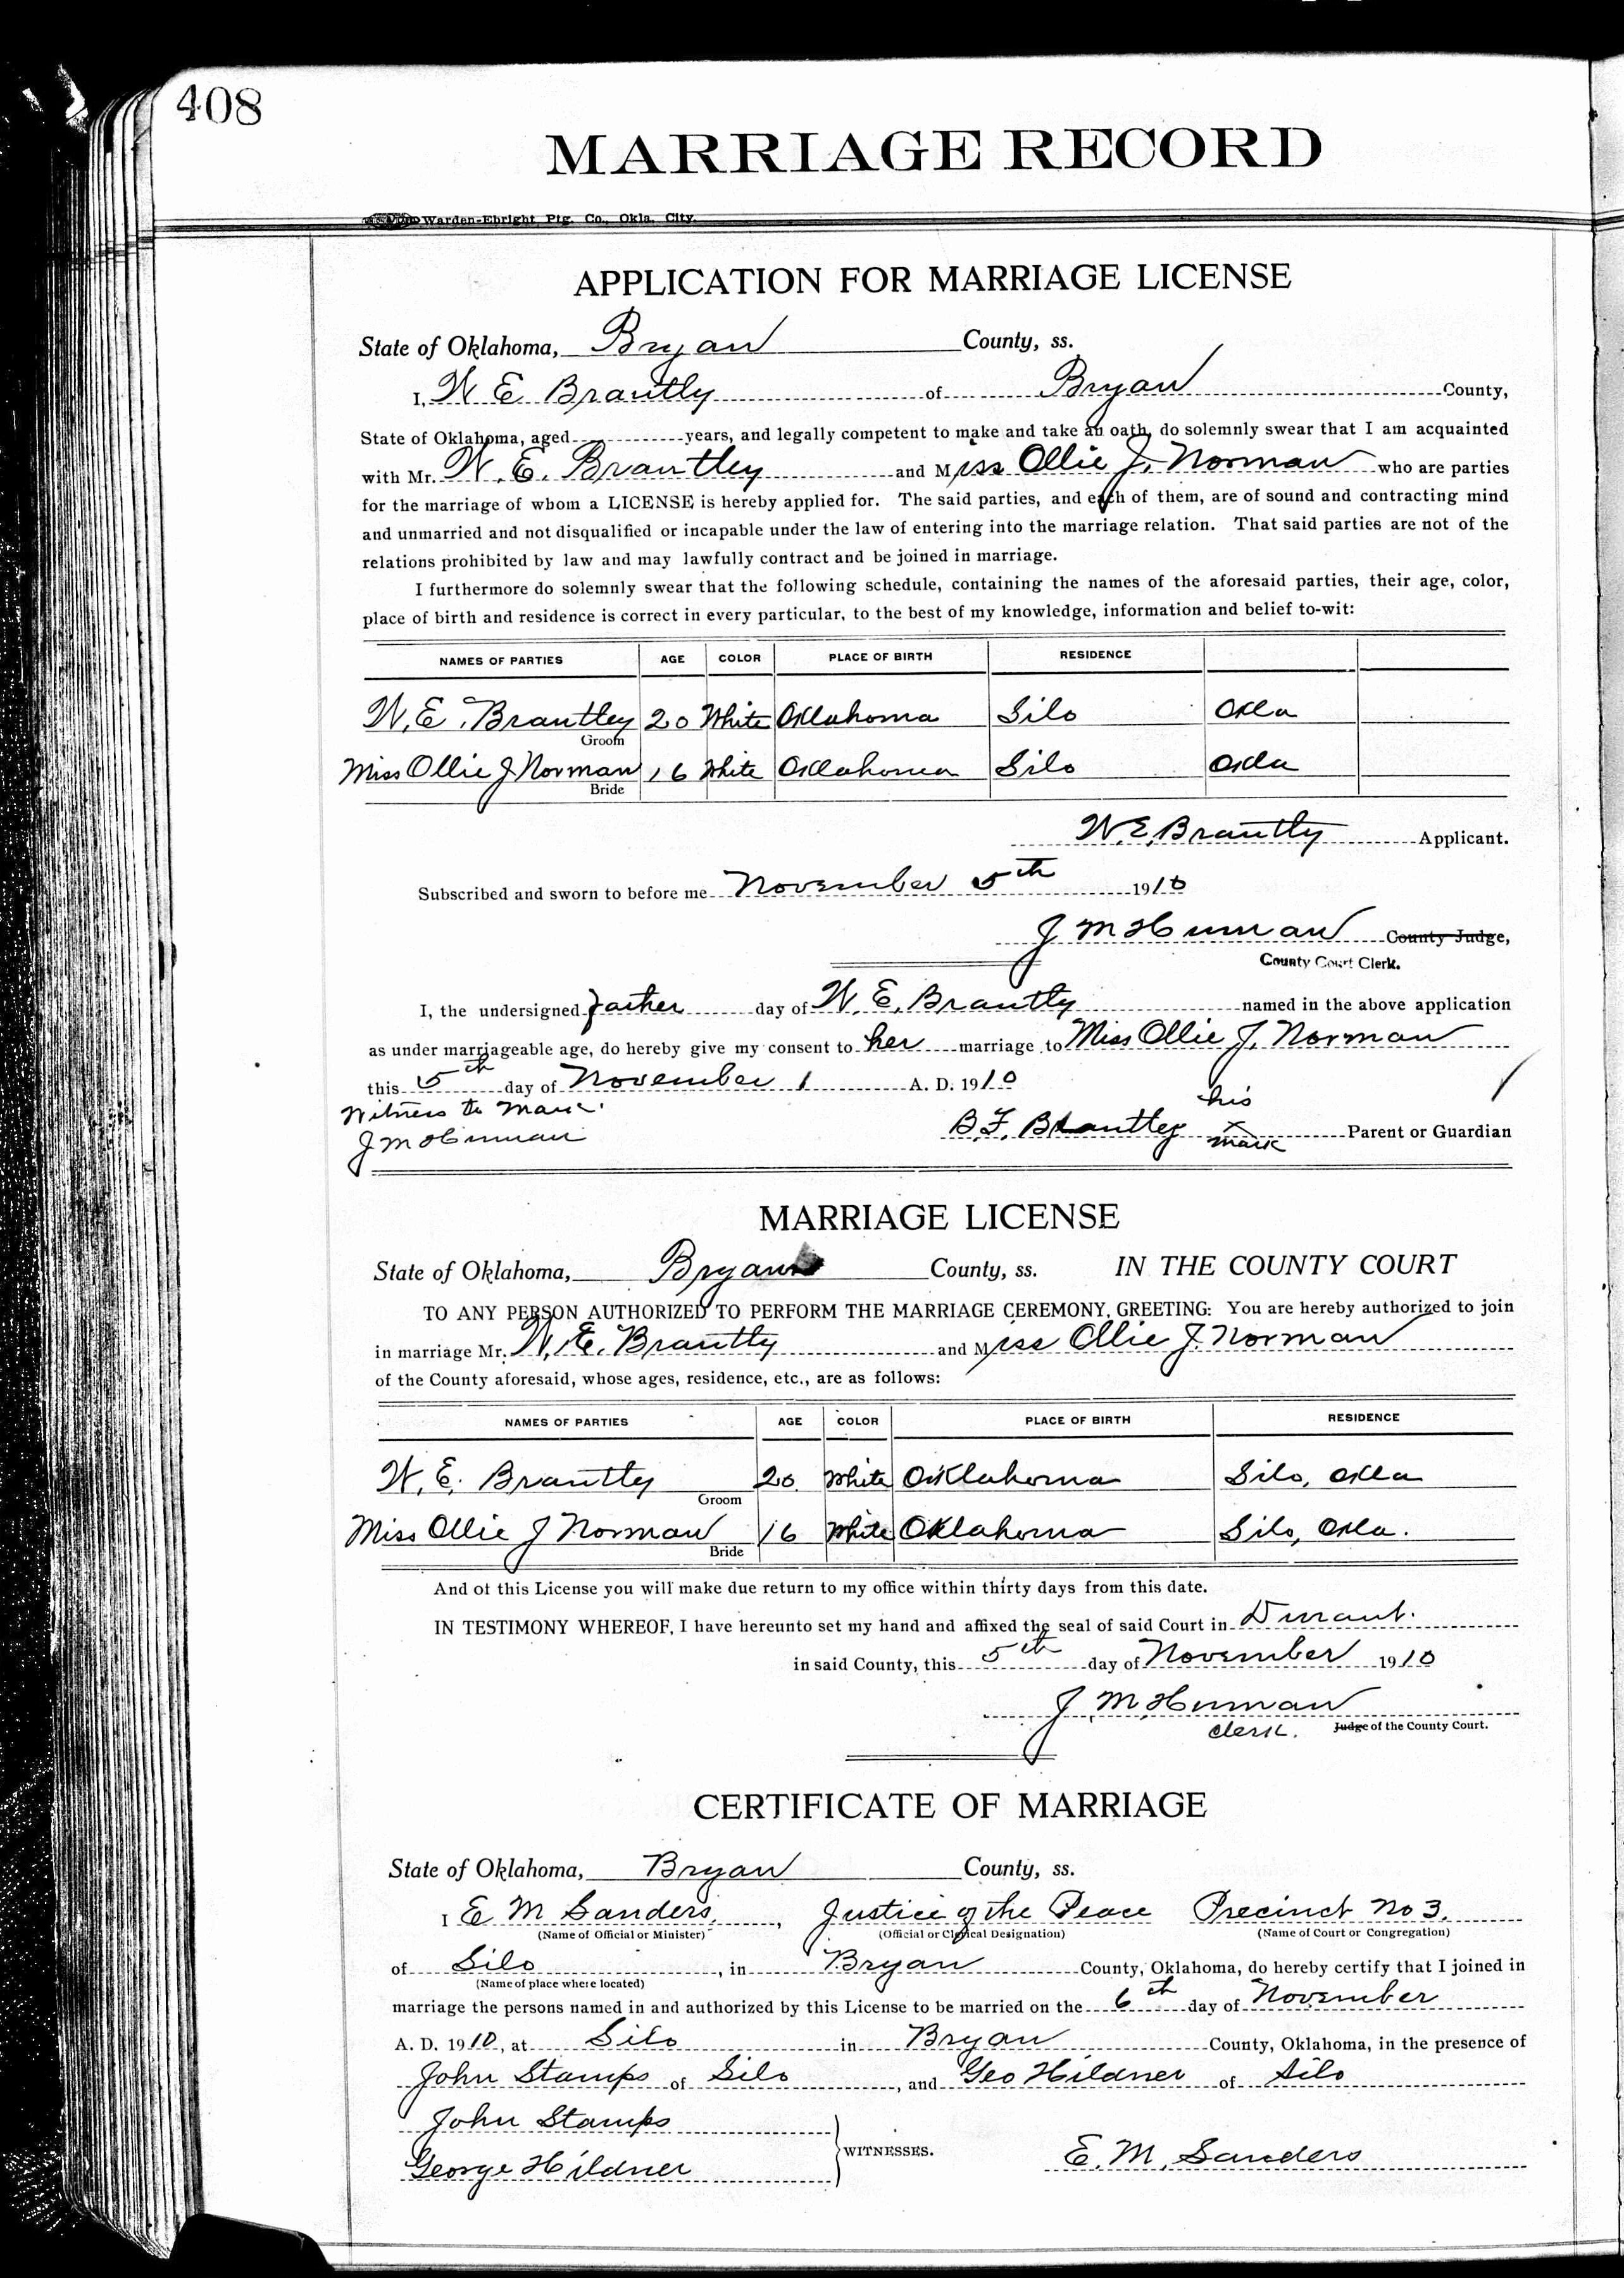 408
MARRIAGE RECORD
Warden-Ebright Ptg. Co., Okla. City.
APPLICATION FOR MARRIAGE LICENSE
State of Oklahoma, Bryan County, ss.
I, W E Brantly of Bryan County,
State of Oklahoma, aged years, and legally competent to make and take an oath, do solemnly swear that I am acquainted
with Mr. W. E. Brantley and Miss Ollie J. Norman who are parties
for the marriage of whom a LICENSE is hereby applied for. The said parties, and each of them, are of sound and contracting mind
and unmarried and not disqualified or incapable under the law of entering into the marriage relation. That said parties are not of the
relations prohibited by law and may lawfully contract and be joined in marriage.
I furthermore do solemnly swear that the following schedule, containing the names of the aforesaid parties, their age, color,
place of birth and residence is correct in every particular, to the best of my knowledge, information and belief to-wit:
NAMES OF PARTIES AGE COLOR PLACE OF BIRTH RESIDENCE
W. E. Brantley 20 White Oklahoma Silo Okla
Groom
Miss Ollie J Norman 16 White Oklahoma Silo Okla
Bride
W. E. Brantly Applicant.
Subscribed and sworn to before me November 5th 1910
J M County Judge,
County Court Clerk.
I, the undersigned father day of W. E. Brantly named in the above application
as under marriageable age, do hereby give my consent to her marriage to Miss Ollie J. Norman
this 5th day of November A. D. 1910
Witness to mark.
his
J M
B. F. Brantley x Parent or Guardian
mark
MARRIAGE LICENSE
State of Oklahoma, Bryan County, ss. IN THE COUNTY COURT
TO ANY PERSON AUTHORIZED TO PERFORM THE MARRIAGE CEREMONY, GREETING: You are hereby authorized to join
in marriage Mr. W. E. Brantly and Miss Ollie J. Norman
of the County aforesaid, whose ages, residence, etc., are as follows:
NAMES OF PARTIES AGE COLOR PLACE OF BIRTH RESIDENCE
W. E. Brantly 20 White Oklahoma Silo, Okla
Groom
Miss Ollie J Norman 16 White Oklahoma Silo, Okla.
Bride
And of this License you will make due return to my office within thirty days from this date.
IN TESTIMONY WHEREOF, I have hereunto set my hand and affixed the seal of said Court in Durant.
in said County, this 5th day of November 1910
J. M.
Clerk. Judge of the County Court.
CERTIFICATE OF MARRIAGE
State of Oklahoma, Bryan County, ss.
I E M Sanders, Justice of the Peace Precinct No 3.
(Name of Official or Minister) (Official or Clerical Designation) (Name of Court or Congregation)
of Silo, in Bryan County, Oklahoma, do hereby certify that I joined in
(Name of place where located)
marriage the persons named in and authorized by this License to be married on the 6th day of November
A. D. 1910, at Silo in Bryan County, Oklahoma, in the presence of
John Stamps of Silo, and Geo Hildner of Silo
John Stamps
WITNESSES. E. M. Sanders
George Hildner